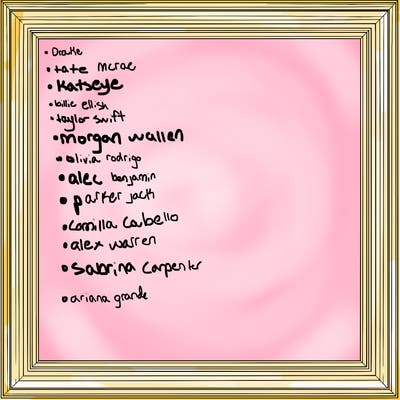 • Drake
• tate mcrae
• Katseye
• billie ellish
• taylor swift
• morgan wallen
• olivia rodrigo
• alec benjamin
• parker jack
• Camilla Cabello
• alex warren
• Sabrina Carpenter
• ariana grande